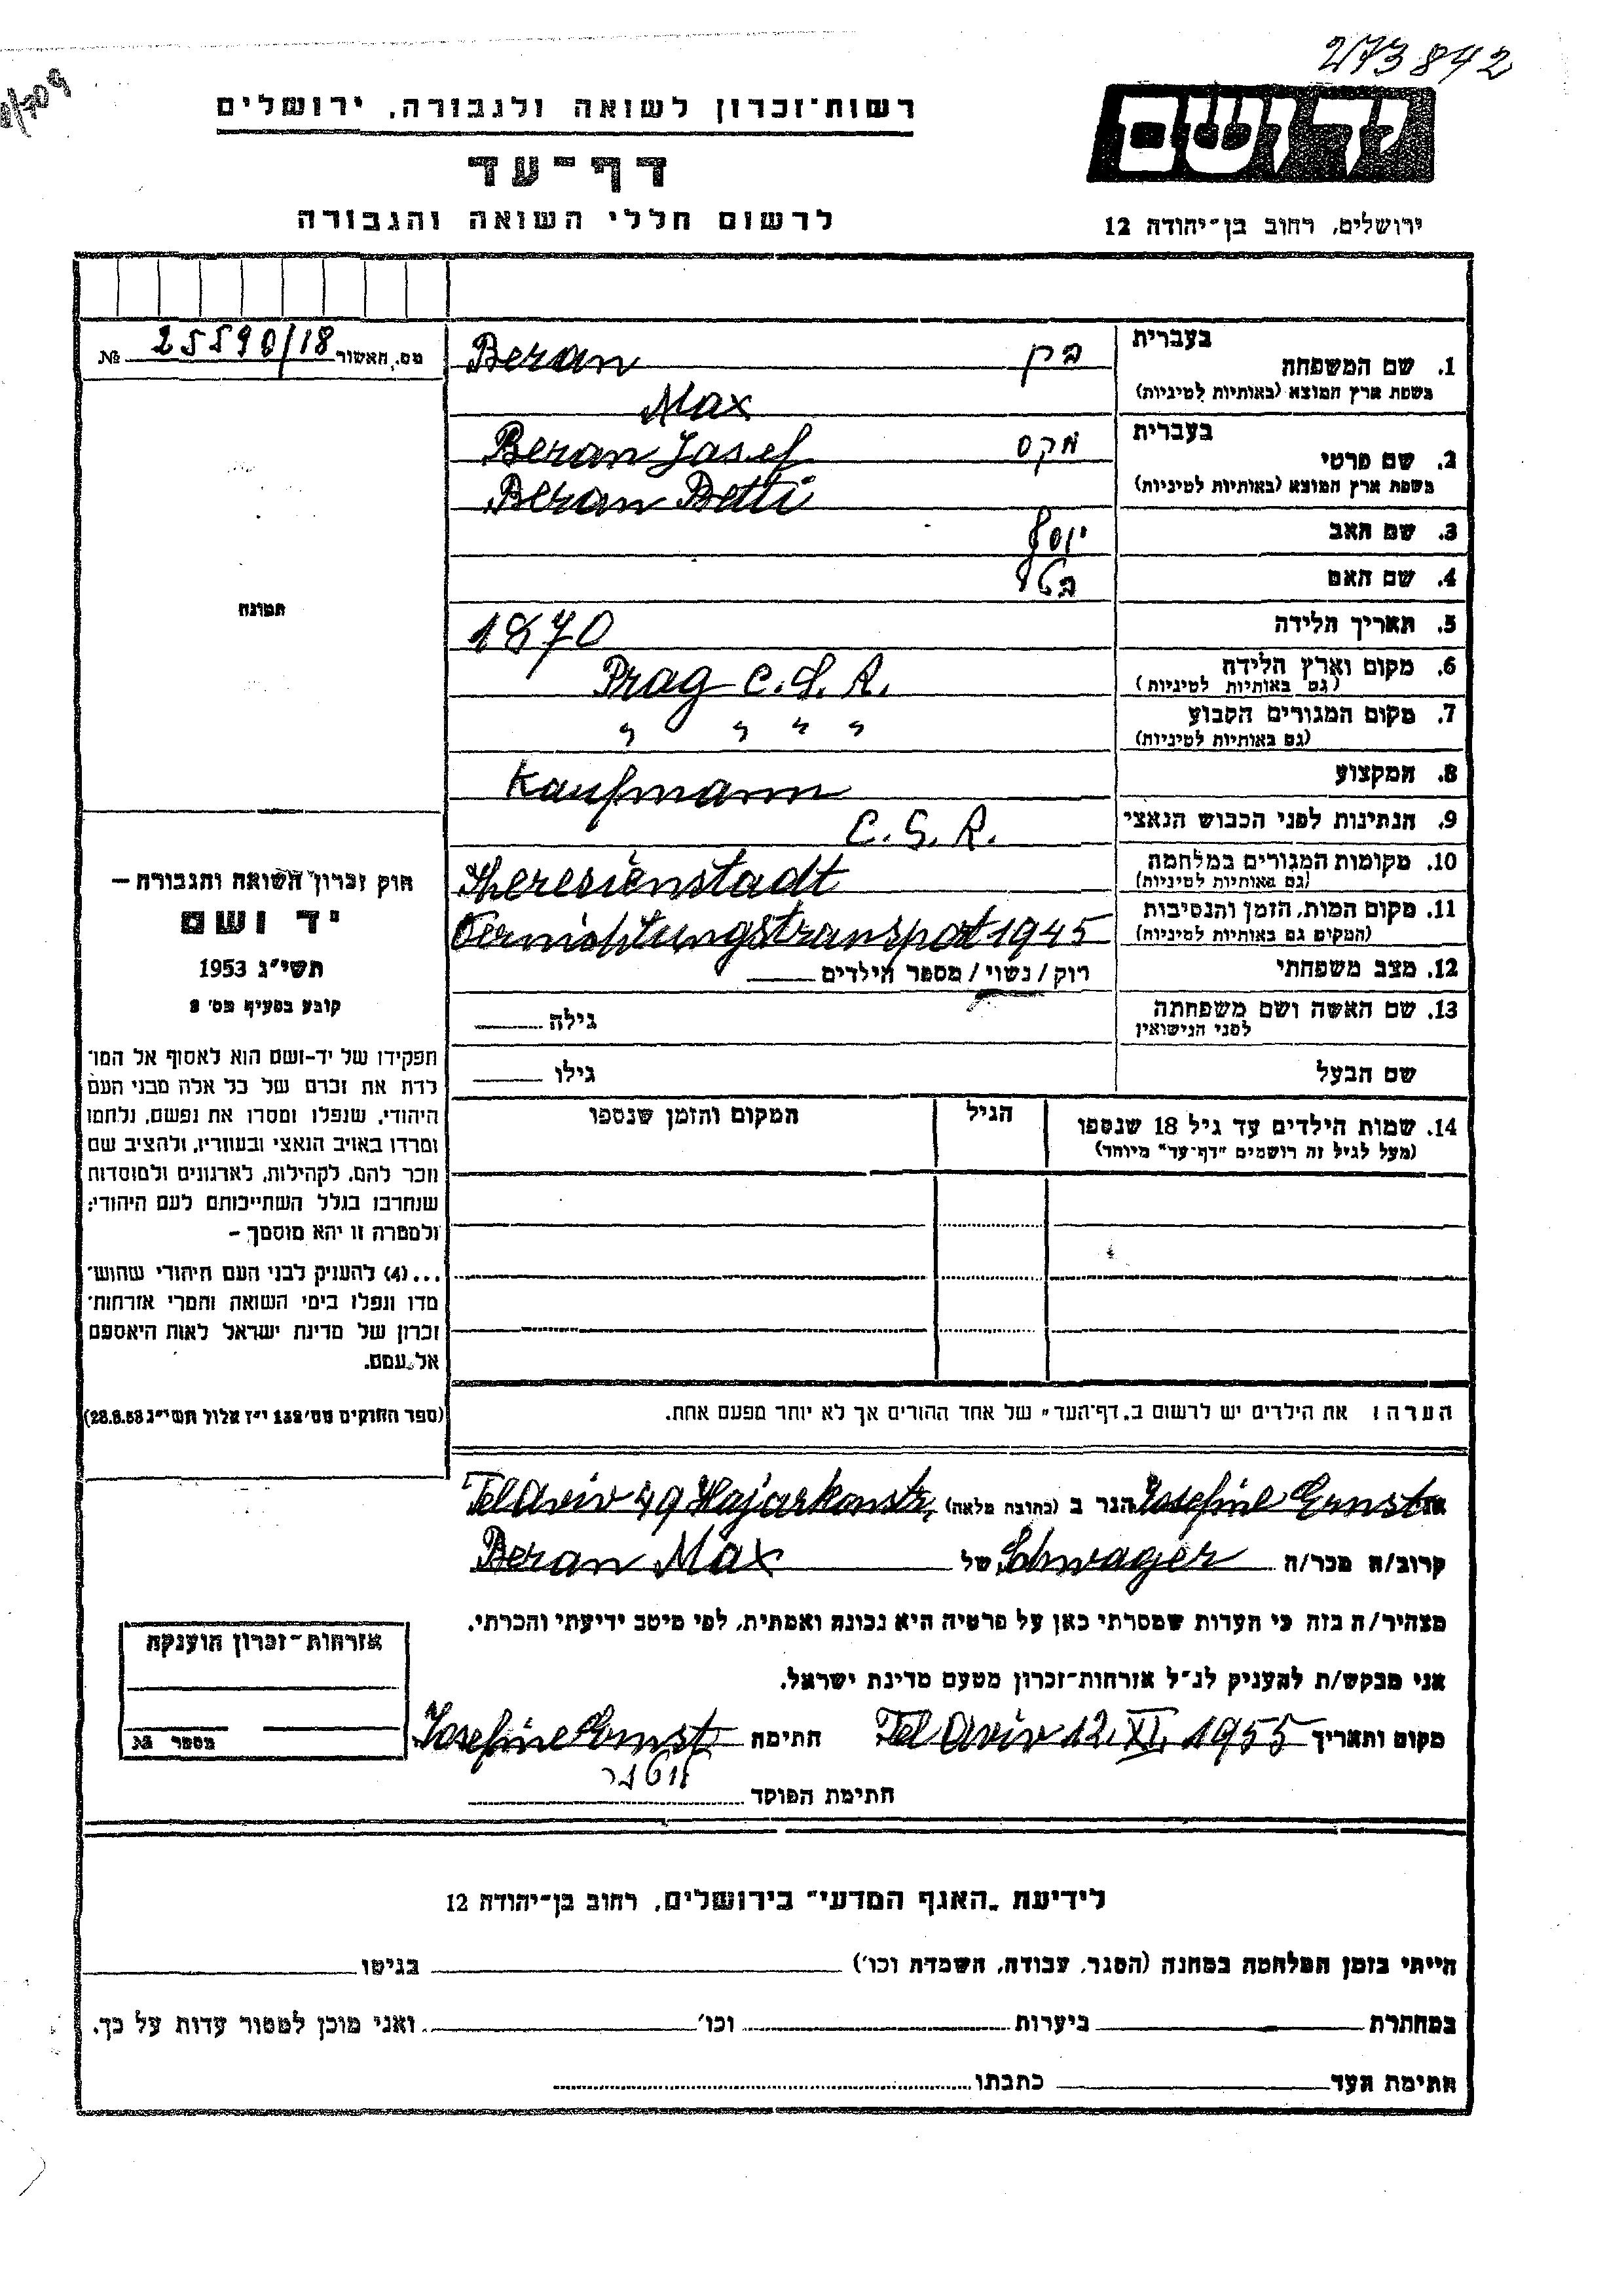 273842
רשות־זכרון לשואה ולגבורה, ירושלים
דף־עד
לרשום חללי השואה והגבורה
יד ושם
ירושלים, רחוב בן־יהודה 12
מס, האשור 25590/18 №
בעברית
1. שם המשפחה
בשפת ארץ המוצא (באותיות לטיניות)
Beran
Max
בעברית
2. שם פרטי מקס
בשפת ארץ המוצא (באותיות לטיניות)
Beran Josef
Beran Betti
3. שם האב יוסף
4. שם האם בטי
תמונה
5. תאריך הלידה 1870
6. מקום וארץ הלידה Prag C.S.R.
(גם באותיות לטיניות)
7. מקום המגורים הקבוע " " " "
(גם באותיות לטיניות)
8. המקצוע Kaufmann
9. הנתינות לפני הכבוש הנאצי C.S.R.
10. מקומות המגורים במלחמה Theresienstadt
(גם באותיות לטיניות)
11. מקום המות, הזמן והנסיבות Vernichtungstransport 1945
(המקום גם באותיות לטיניות)
12. מצב משפחתי רווק / נשוי / מספר הילדים
13. שם האשה ושם משפחתה גילה
לפני הנישואין
שם הבעל גילו
14. שמות הילדים עד גיל 18 שנספו הגיל המקום והזמן שנספו
(מעל לגיל זה רושמים "דף־עד" מיוחד)
חוק זכרון השואה והגבורה –
יד ושם
תשי"ג 1953
קובע בסעיף מס' 2
תפקידו של יד-ושם הוא לאסוף אל המו־
לדת את זכרם של כל אלה מבני העם
היהודי, שנפלו ומסרו את נפשם, נלחמו
ומרדו באויב הנאצי ובעוזריו, ולהציב שם
וזכר להם, לקהילות, לארגונים ולמוסדות
שנחרבו בגלל השתייכותם לעם היהודי;
ולמטרה זו יהא מוסמך –
...(4) להעניק לבני העם היהודי שהוש־
מדו ונפלו בימי השואה והמרי אזרחות־
זכרון של מדינת ישראל לאות היאספם
אל עמם.
(ספר החוקים מס' 132 י"ז אלול תשי"ג 28.8.53)
הערה: את הילדים יש לרשום ב„דף־העד" של אחד ההורים אך לא יותר מפעם אחת.
אני Josefine Ernst הגר ב (כתובת מלאה) Tel Aviv 49 Hajarkonstr.
קרוב/ה מכר/ה Schwager של Beran Max
מצהיר/ה בזה כי העדות שמסרתי כאן על פרטיה היא נכונה ואמתית, לפי מיטב ידיעתי והכרתי.
אני מבקש/ת להעניק לנ"ל אזרחות־זכרון מטעם מדינת ישראל.
מקום ותאריך Tel Aviv 12. XI. 1955 חתימה Josefine Ernst
חתימת הפוקד
אזרחות־זכרון הוענקה
מספר №
לידיעת „האגף המדעי" בירושלים, רחוב בן־יהודה 12
הייתי בזמן המלחמה במחנה (הסגר, עבודה, השמדה וכו') בגיטו
במחתרת ביערות וכו' ואני מוכן למסור עדות על כך.
חתימת העד כתבתו